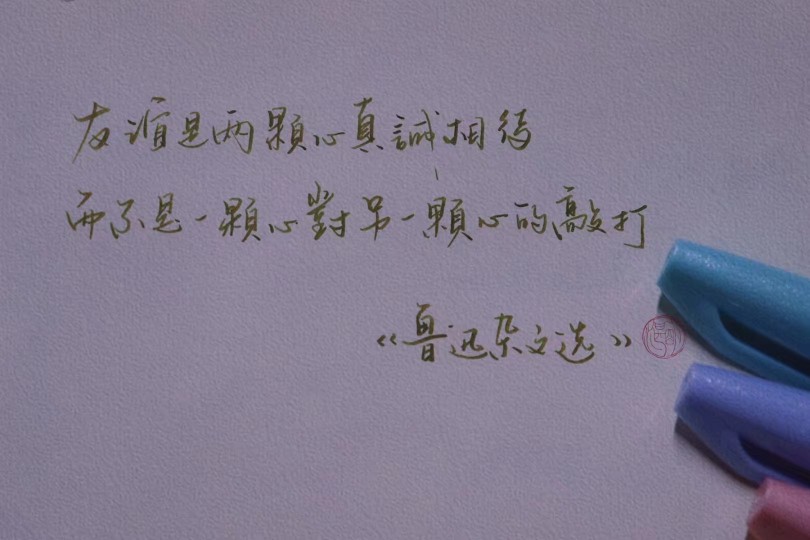 友谊是两顆心真誠相待
而不是一顆心對另一顆心的敲打
《鲁迅杂文选》